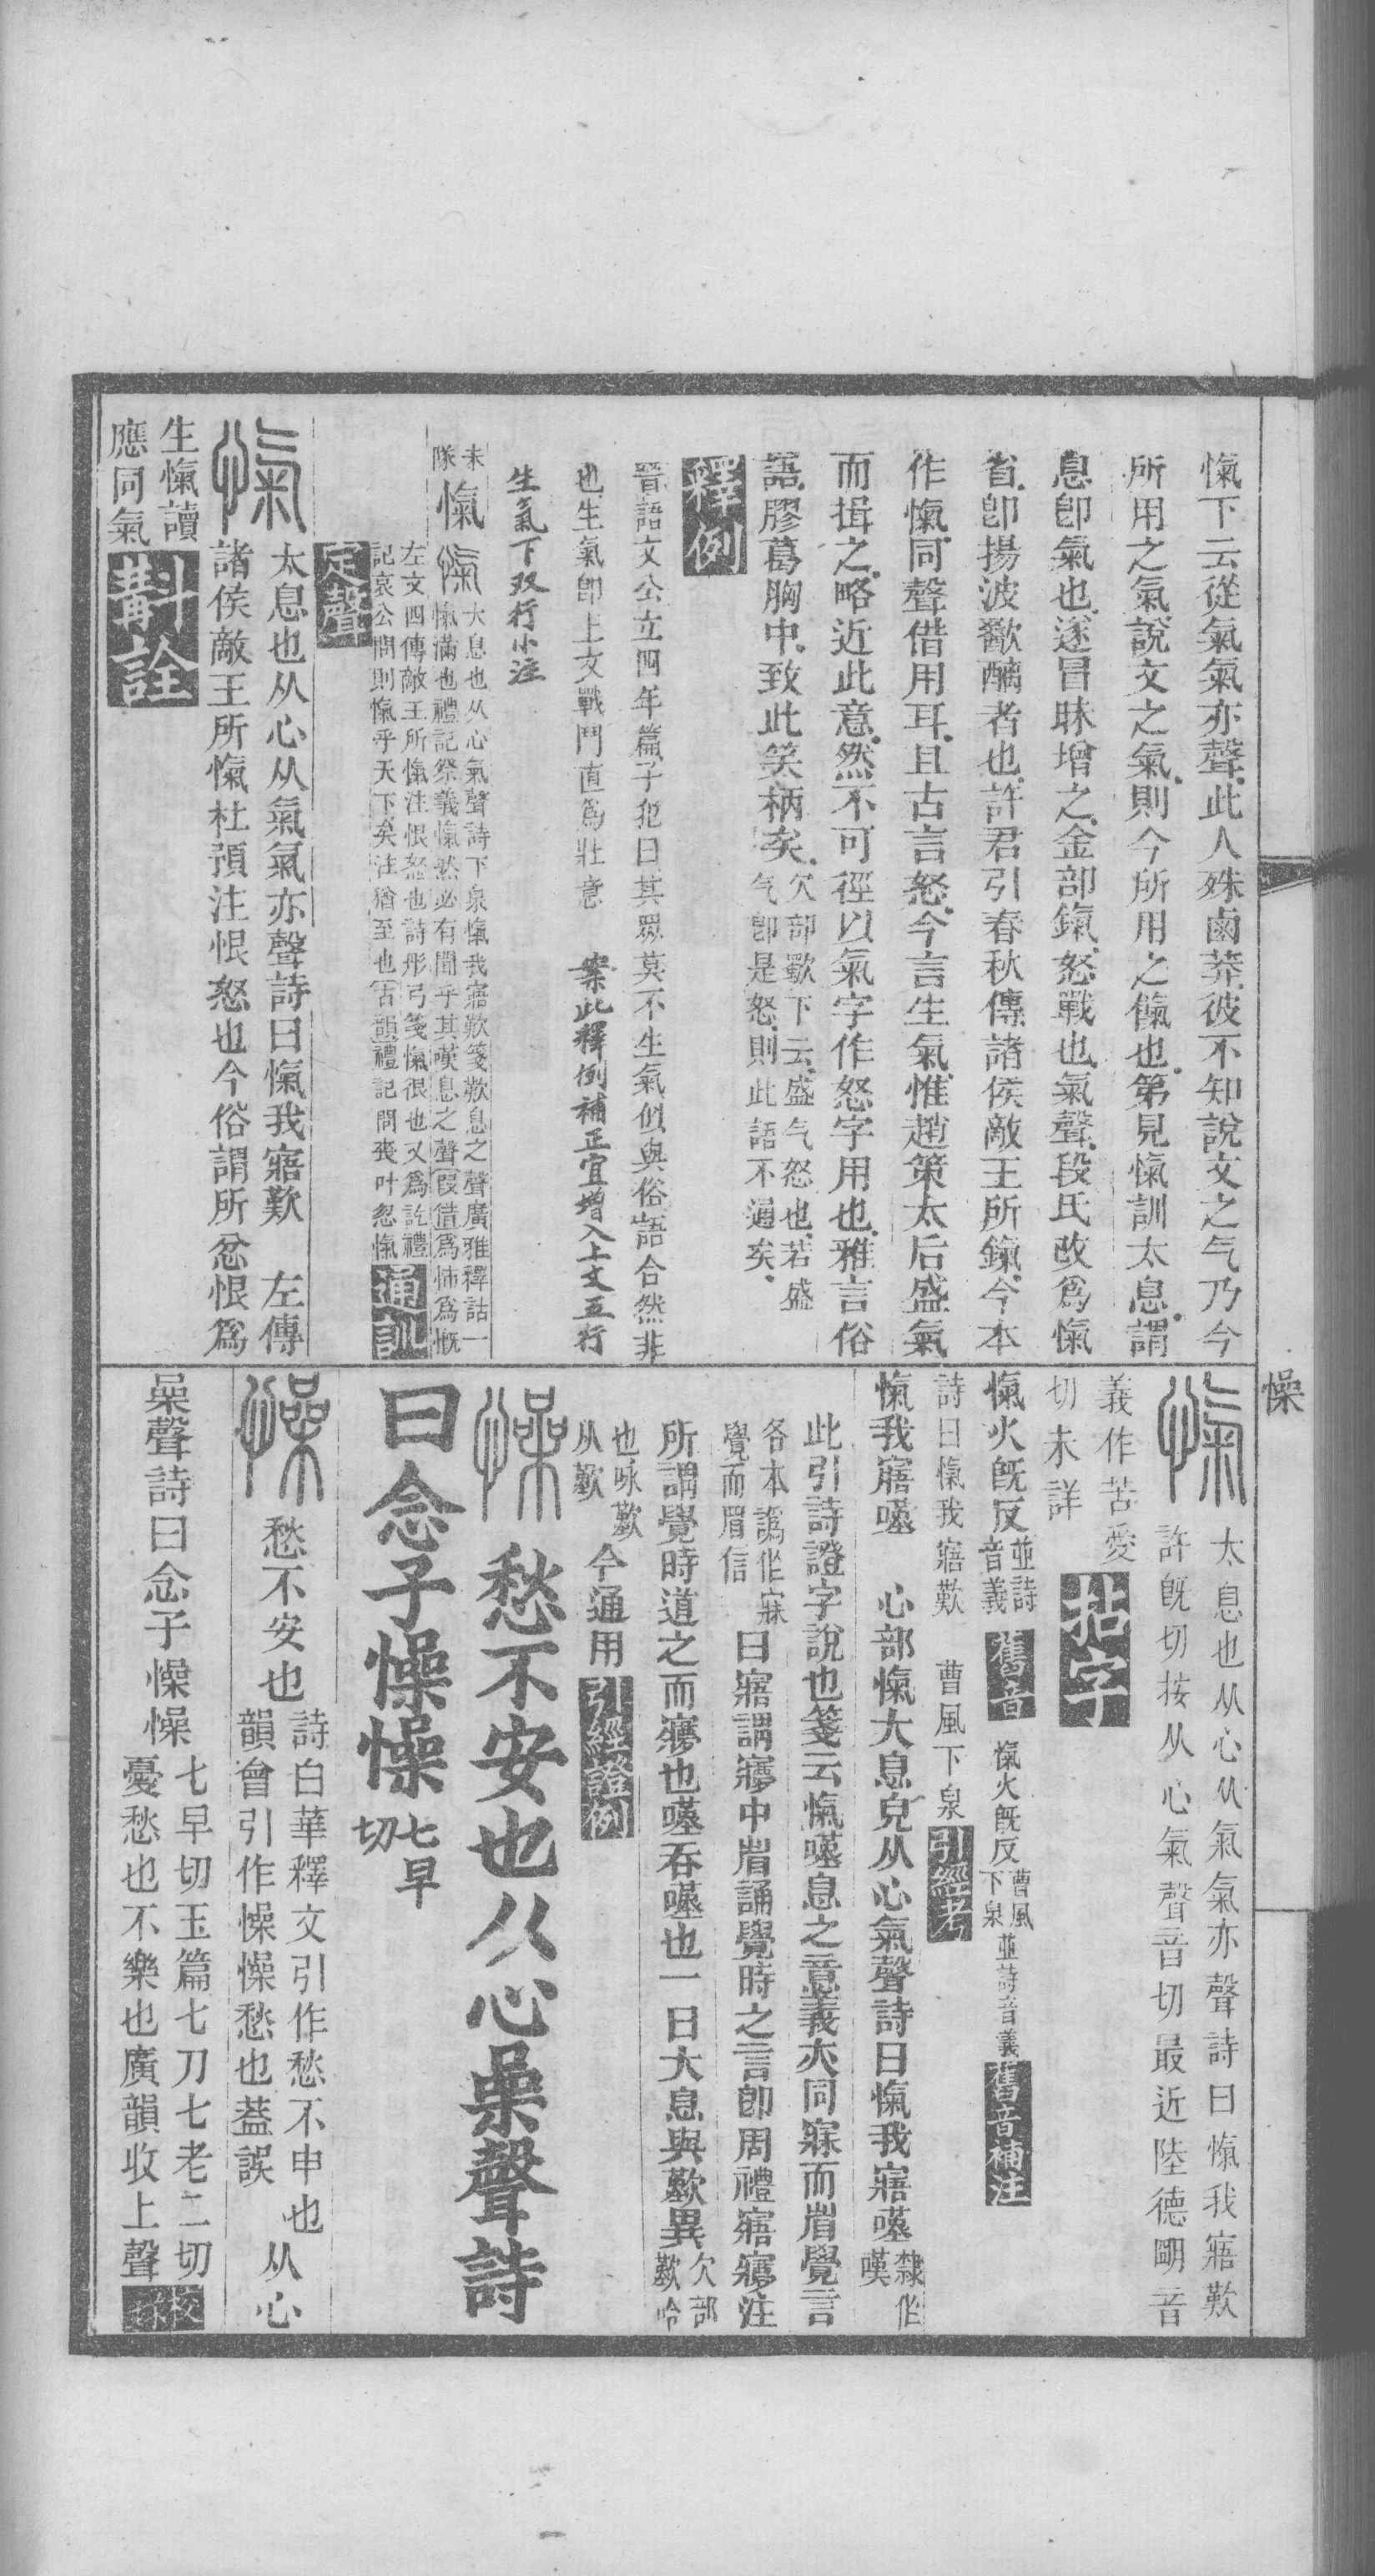 愾下云從氣氣亦聲此人殊鹵莽彼不知說文之气乃今
所用之氣說文之氣則今所用之餼也第見愾訓太息謂
息卽氣也遂冒昧增之金部鎎怒戰也氣聲段氏改爲愾
省卽揚波歠醨者也許君引春秋傳諸侯敵王所鎎今本
作愾同聲借用耳且古言怒今言生氣惟趙策太后盛氣
而揖之略近此意然不可徑以氣字作怒字用也雅言俗
語膠葛胸中致此笑柄矣
欠部歜下云盛气怒也若盛
气卽是怒則此語不通矣
釋例
晉語文公立四年篇子犯曰其眾莫不生氣似與俗語合然非
也生氣卽上文戰鬥直爲壯意　案此釋例補正宜增入上文五行
生氣下双行小注
未
隊
愾
愾
大息也从心氣聲詩下泉愾我寤歎箋歎息之聲廣雅釋詁一
愾滿也禮記祭義愾然必有聞乎其嘆息之聲叚借爲㤥爲慨
左文四傳敵王所愾注恨怒也詩彤弓箋愾很也又爲訖禮
記哀公問則愾乎天下矣注猶至也古韻禮記問喪叶忽愾
通訓
定聲
愾
太息也从心从氣氣亦聲詩曰愾我寤歎　左傳
諸侯敵王所愾杜預注恨怒也今俗謂所忿恨爲
生愾讀
應同氣
斠詮
懆
愾
太息也从心从氣氣亦聲詩曰愾我寤歎
許旣切按从心氣聲音切最近陸德明音
義作苦愛
切未詳
拈字
愾火旣反
並詩
音義
舊音
愾火旣反
曹風
下泉
並詩音義
舊音補注
詩曰愾我寤歎　曹風下泉
引經考
愾我寤嘆　心部愾大息皃从心氣聲詩曰愾我寤嘆
隸作
嘆
此引詩證字說也箋云愾嘆息之意義亦同寐而眉覺言
各本譌作寐
覺而眉信
曰寤謂㝱中眉誦覺時之言卽周禮寤㝱注
所謂覺時道之而㝱也嘆吞嘆也一曰大息與歎異
欠部
歎吟
也咏歎
从歎
今通用
引經證例
懆
愁不安也从心喿聲詩
曰念子懆懆
七早
切
懆
愁不安也
詩白華釋文引作愁不申也
韻會引作懆懆愁也蓋誤
从心
喿聲詩曰念子懆懆
七早切玉篇七刀七老二切
憂愁也不樂也廣韻收上聲
校錄